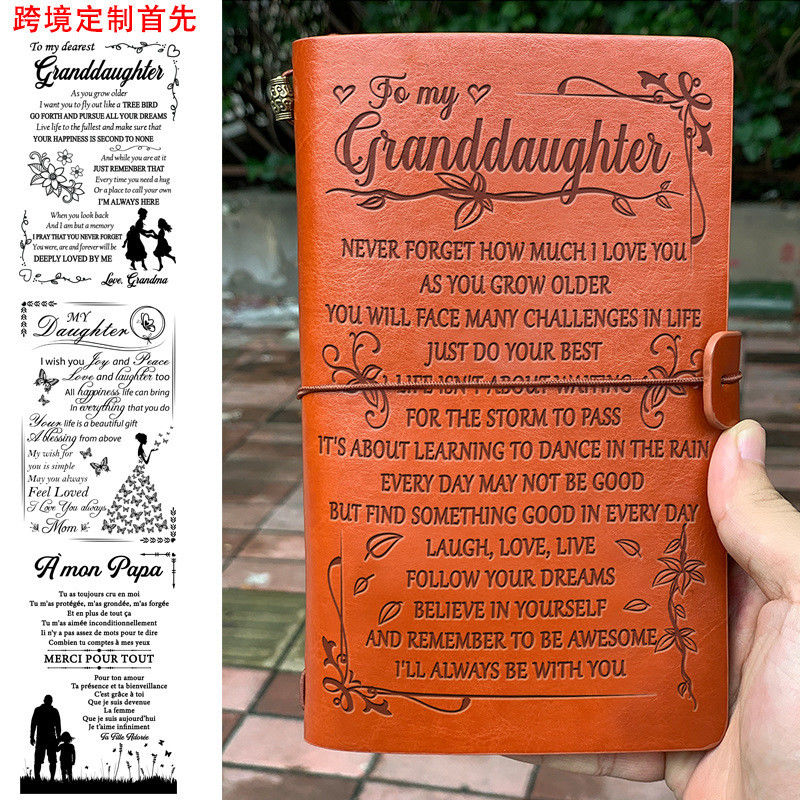 跨境定制首先
To my dearest
Granddaughter
As you grow older
I want you to fly out like a TREE BIRD
GO FORTH AND PURSUE ALL YOUR DREAMS
Live life to the fullest and make sure that
YOUR HAPPINESS IS SECOND TO NONE
And while you are at it
JUST REMENBER THAT
Every time you need a hug
Or a place to call your own
I'M ALWAYS HERE
When you look back
And I am but a memory
I PRAY THAT YOU NEVER FORGET
You were, are and forever will be
DEEPLY LOVED BY ME
Love, Grandma
MY
Daughter
I wish you Joy and Peace
Love and laughter too
All happiness life can bring
In everything that you do
Your life is a beautiful gift
A blessing from above
My wish for
you is simple
May you always
Feel Loved
I Love You always
Mom
À mon Papa
Tu as toujours cru en moi
Tu m'as protégée, m'as grondée, m'as forgée
Et en plus de tout ça
Tu m'as aimée inconditionnellement
Il n'y a pas assez de mots pour te dire
Combien tu comptes à mes yeux
MERCI POUR TOUT
Pour ton amour
Ta présence et ta bienveillance
C'est grâce à toi
Que je suis devenue
La femme
Que je suis aujourd'hui
Je t'aime infiniment
Ta Fille Adorée
To my
Granddaughter
NEVER FORGET HOW MUCH I LOVE YOU
AS YOU GROW OLDER
YOU WILL FACE MANY CHALLENGES IN LIFE
JUST DO YOUR BEST
LIFE ISN'T ABOUT WAITING
FOR THE STORM TO PASS
IT'S ABOUT LEARNING TO DANCE IN THE RAIN
EVERY DAY MAY NOT BE GOOD
BUT FIND SOMETHING GOOD IN EVERY DAY
LAUGH, LOVE, LIVE
FOLLOW YOUR DREAMS
BELIEVE IN YOURSELF
AND REMEMBER TO BE AWESOME
I'LL ALWAYS BE WITH YOU